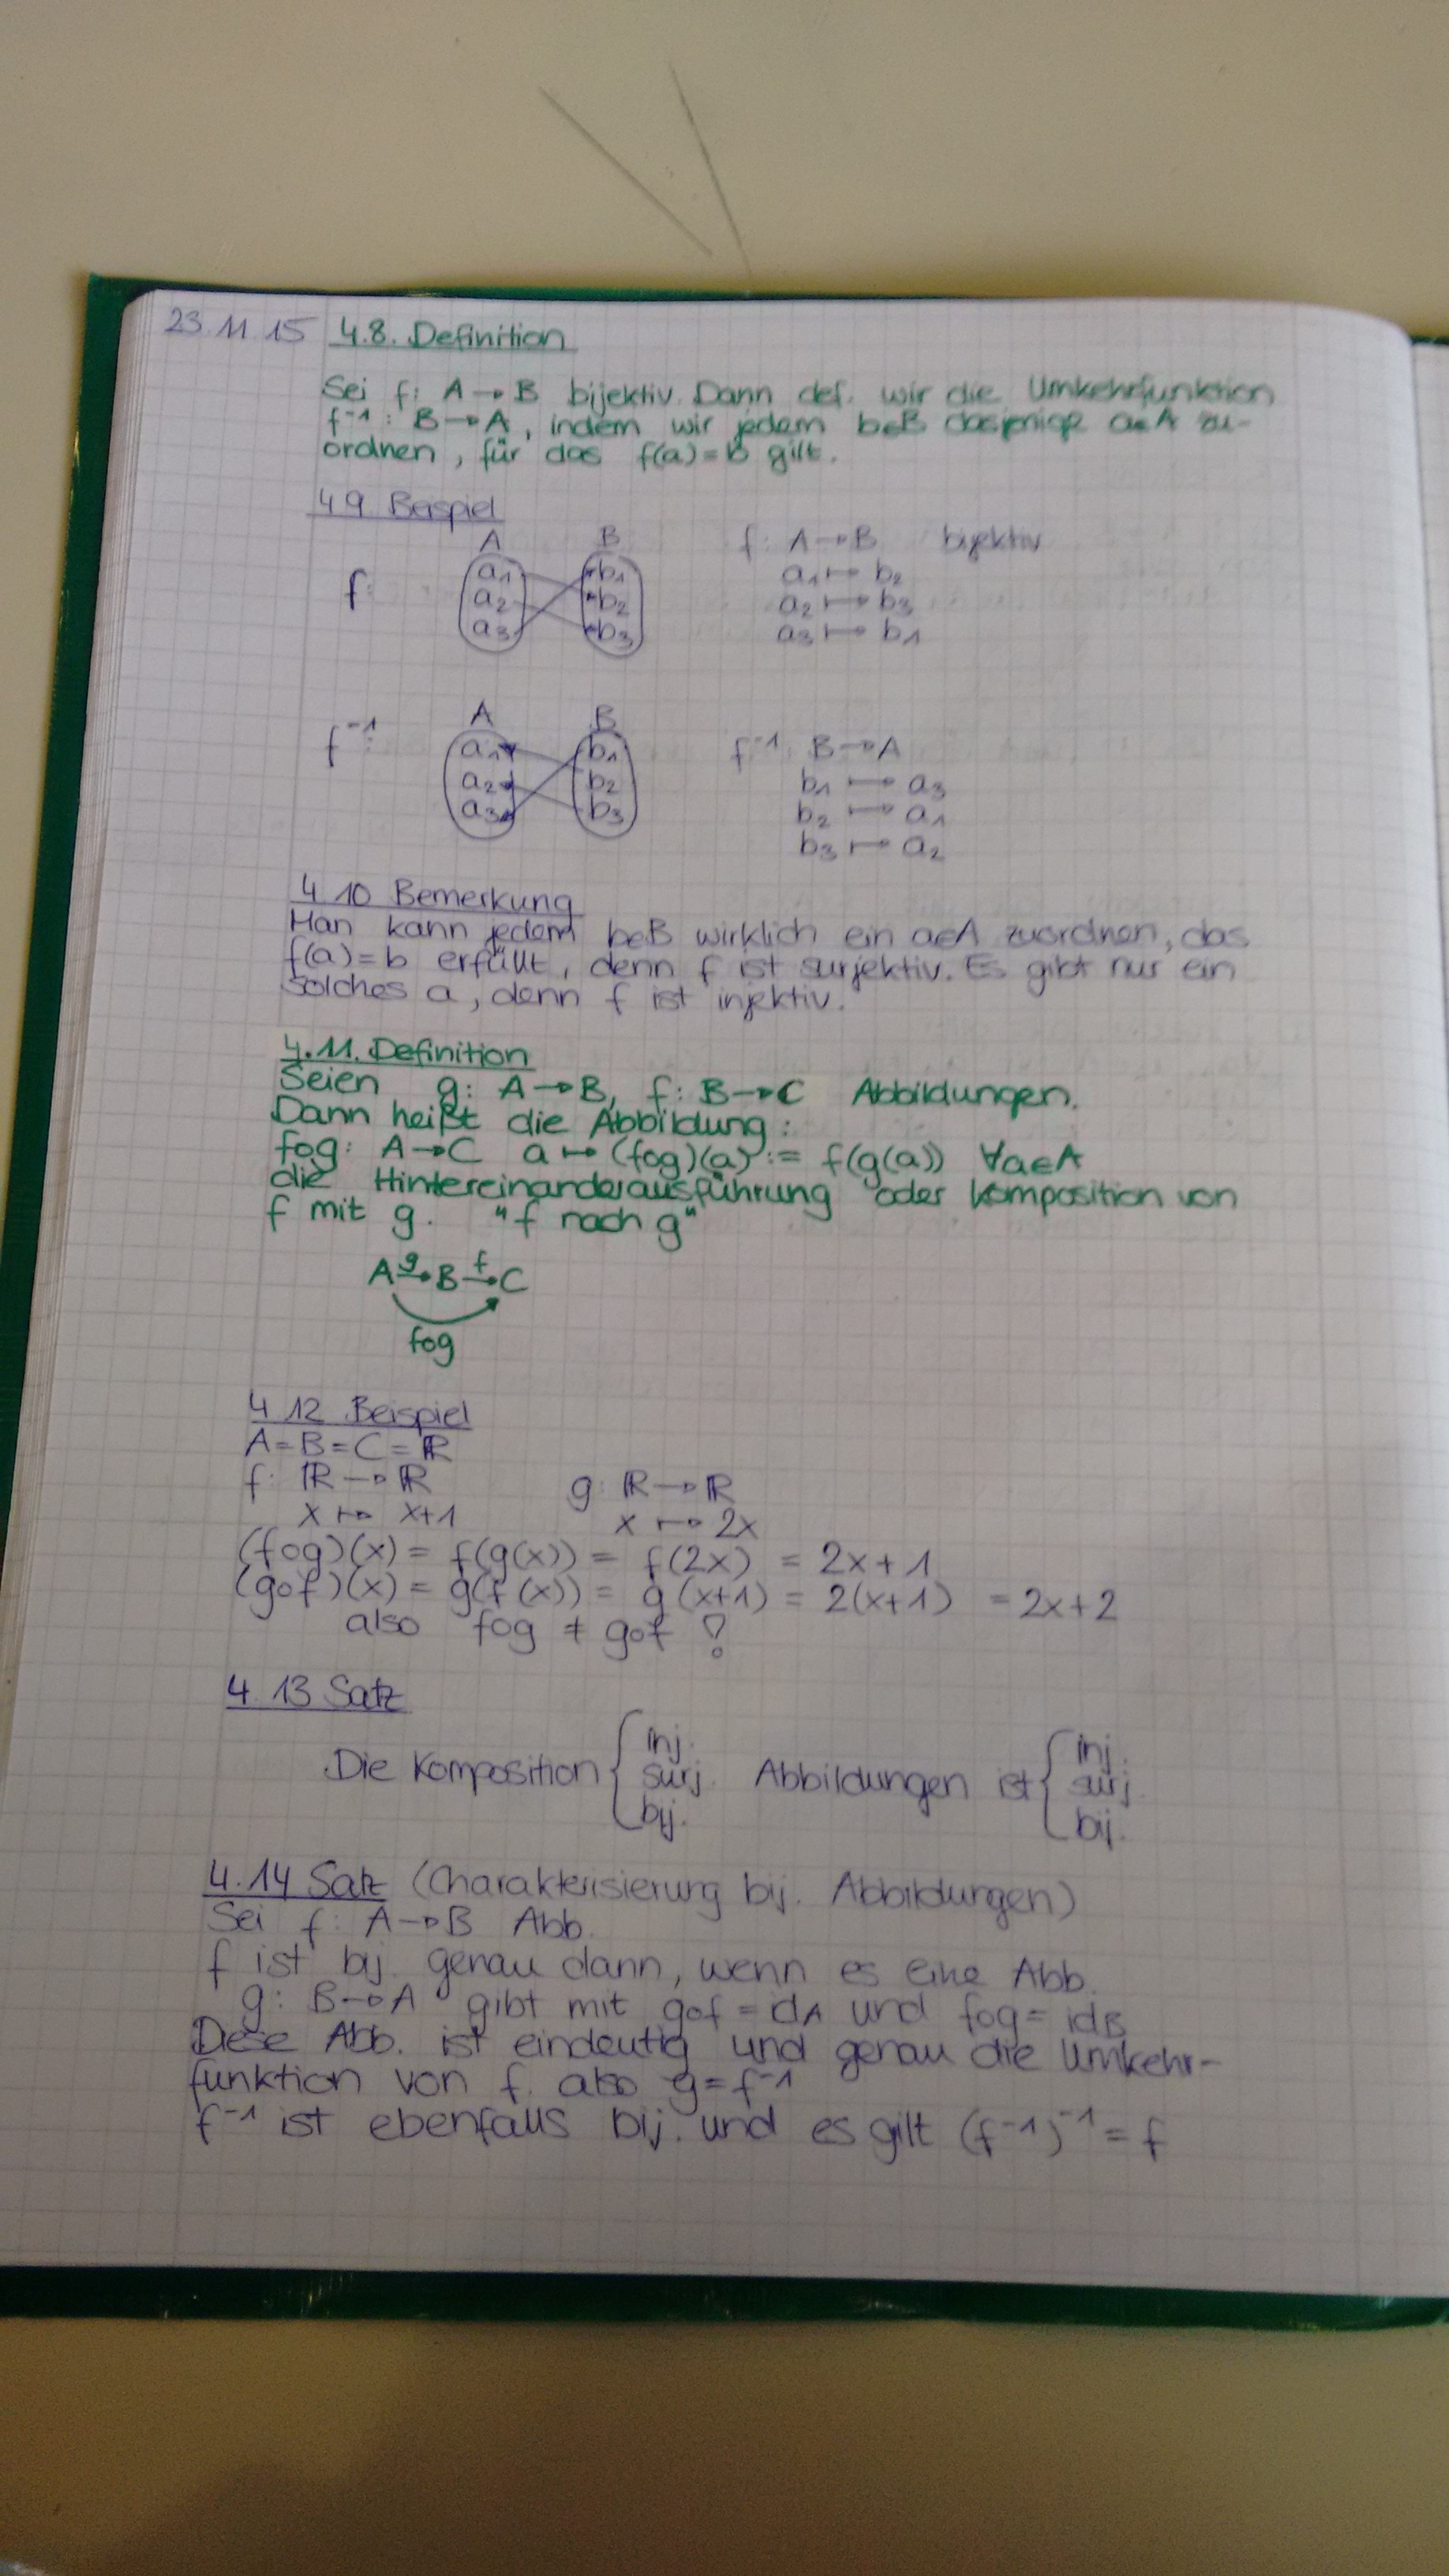 23.11.15 4.8. Definition
Sei f: A→B bijektiv. Dann def. wir die Umkehrfunktion
f⁻¹: B→A, indem wir jedem b∈B dasjenige a∈A zu-
ordnen, für das f(a)=b gilt.
4.9 Beispiel
A B f: A→B bijektiv
f: a₁ b₁ a₁ ↦ b₂
a₂ b₂ a₂ ↦ b₃
a₃ b₃ a₃ ↦ b₁
A B
f⁻¹: a₁ b₁ f⁻¹: B→A
a₂ b₂ b₁ ↦ a₃
a₃ b₃ b₂ ↦ a₁
b₃ ↦ a₂
4.10 Bemerkung
Man kann jedem b∈B wirklich ein a∈A zuordnen, das
f(a)=b erfüllt, denn f ist surjektiv. Es gibt nur ein
solches a, denn f ist injektiv.
4.11. Definition
Seien g: A→B, f: B→C Abbildungen.
Dann heißt die Abbildung:
f∘g: A→C a ↦ (f∘g)(a) := f(g(a)) ∀a∈A
die Hintereinanderausführung oder Komposition von
f mit g. "f nach g"
A →g B →f C
f∘g
4.12 Beispiel
A=B=C=ℝ
f: ℝ→ℝ g: ℝ→ℝ
x ↦ x+1 x ↦ 2x
(f∘g)(x) = f(g(x)) = f(2x) = 2x+1
(g∘f)(x) = g(f(x)) = g(x+1) = 2(x+1) = 2x+2
also f∘g ≠ g∘f !
4.13 Satz
Die Komposition { inj. surj. bij. Abbildungen ist { inj. surj. bij.
4.14 Satz (Charakterisierung bij. Abbildungen)
Sei f: A→B Abb.
f ist bij. genau dann, wenn es eine Abb.
g: B→A gibt mit g∘f = dA und f∘g = idB
Diese Abb. ist eindeutig und genau die Umkehr-
funktion von f. also g=f⁻¹
f⁻¹ ist ebenfalls bij. und es gilt (f⁻¹)⁻¹ = f